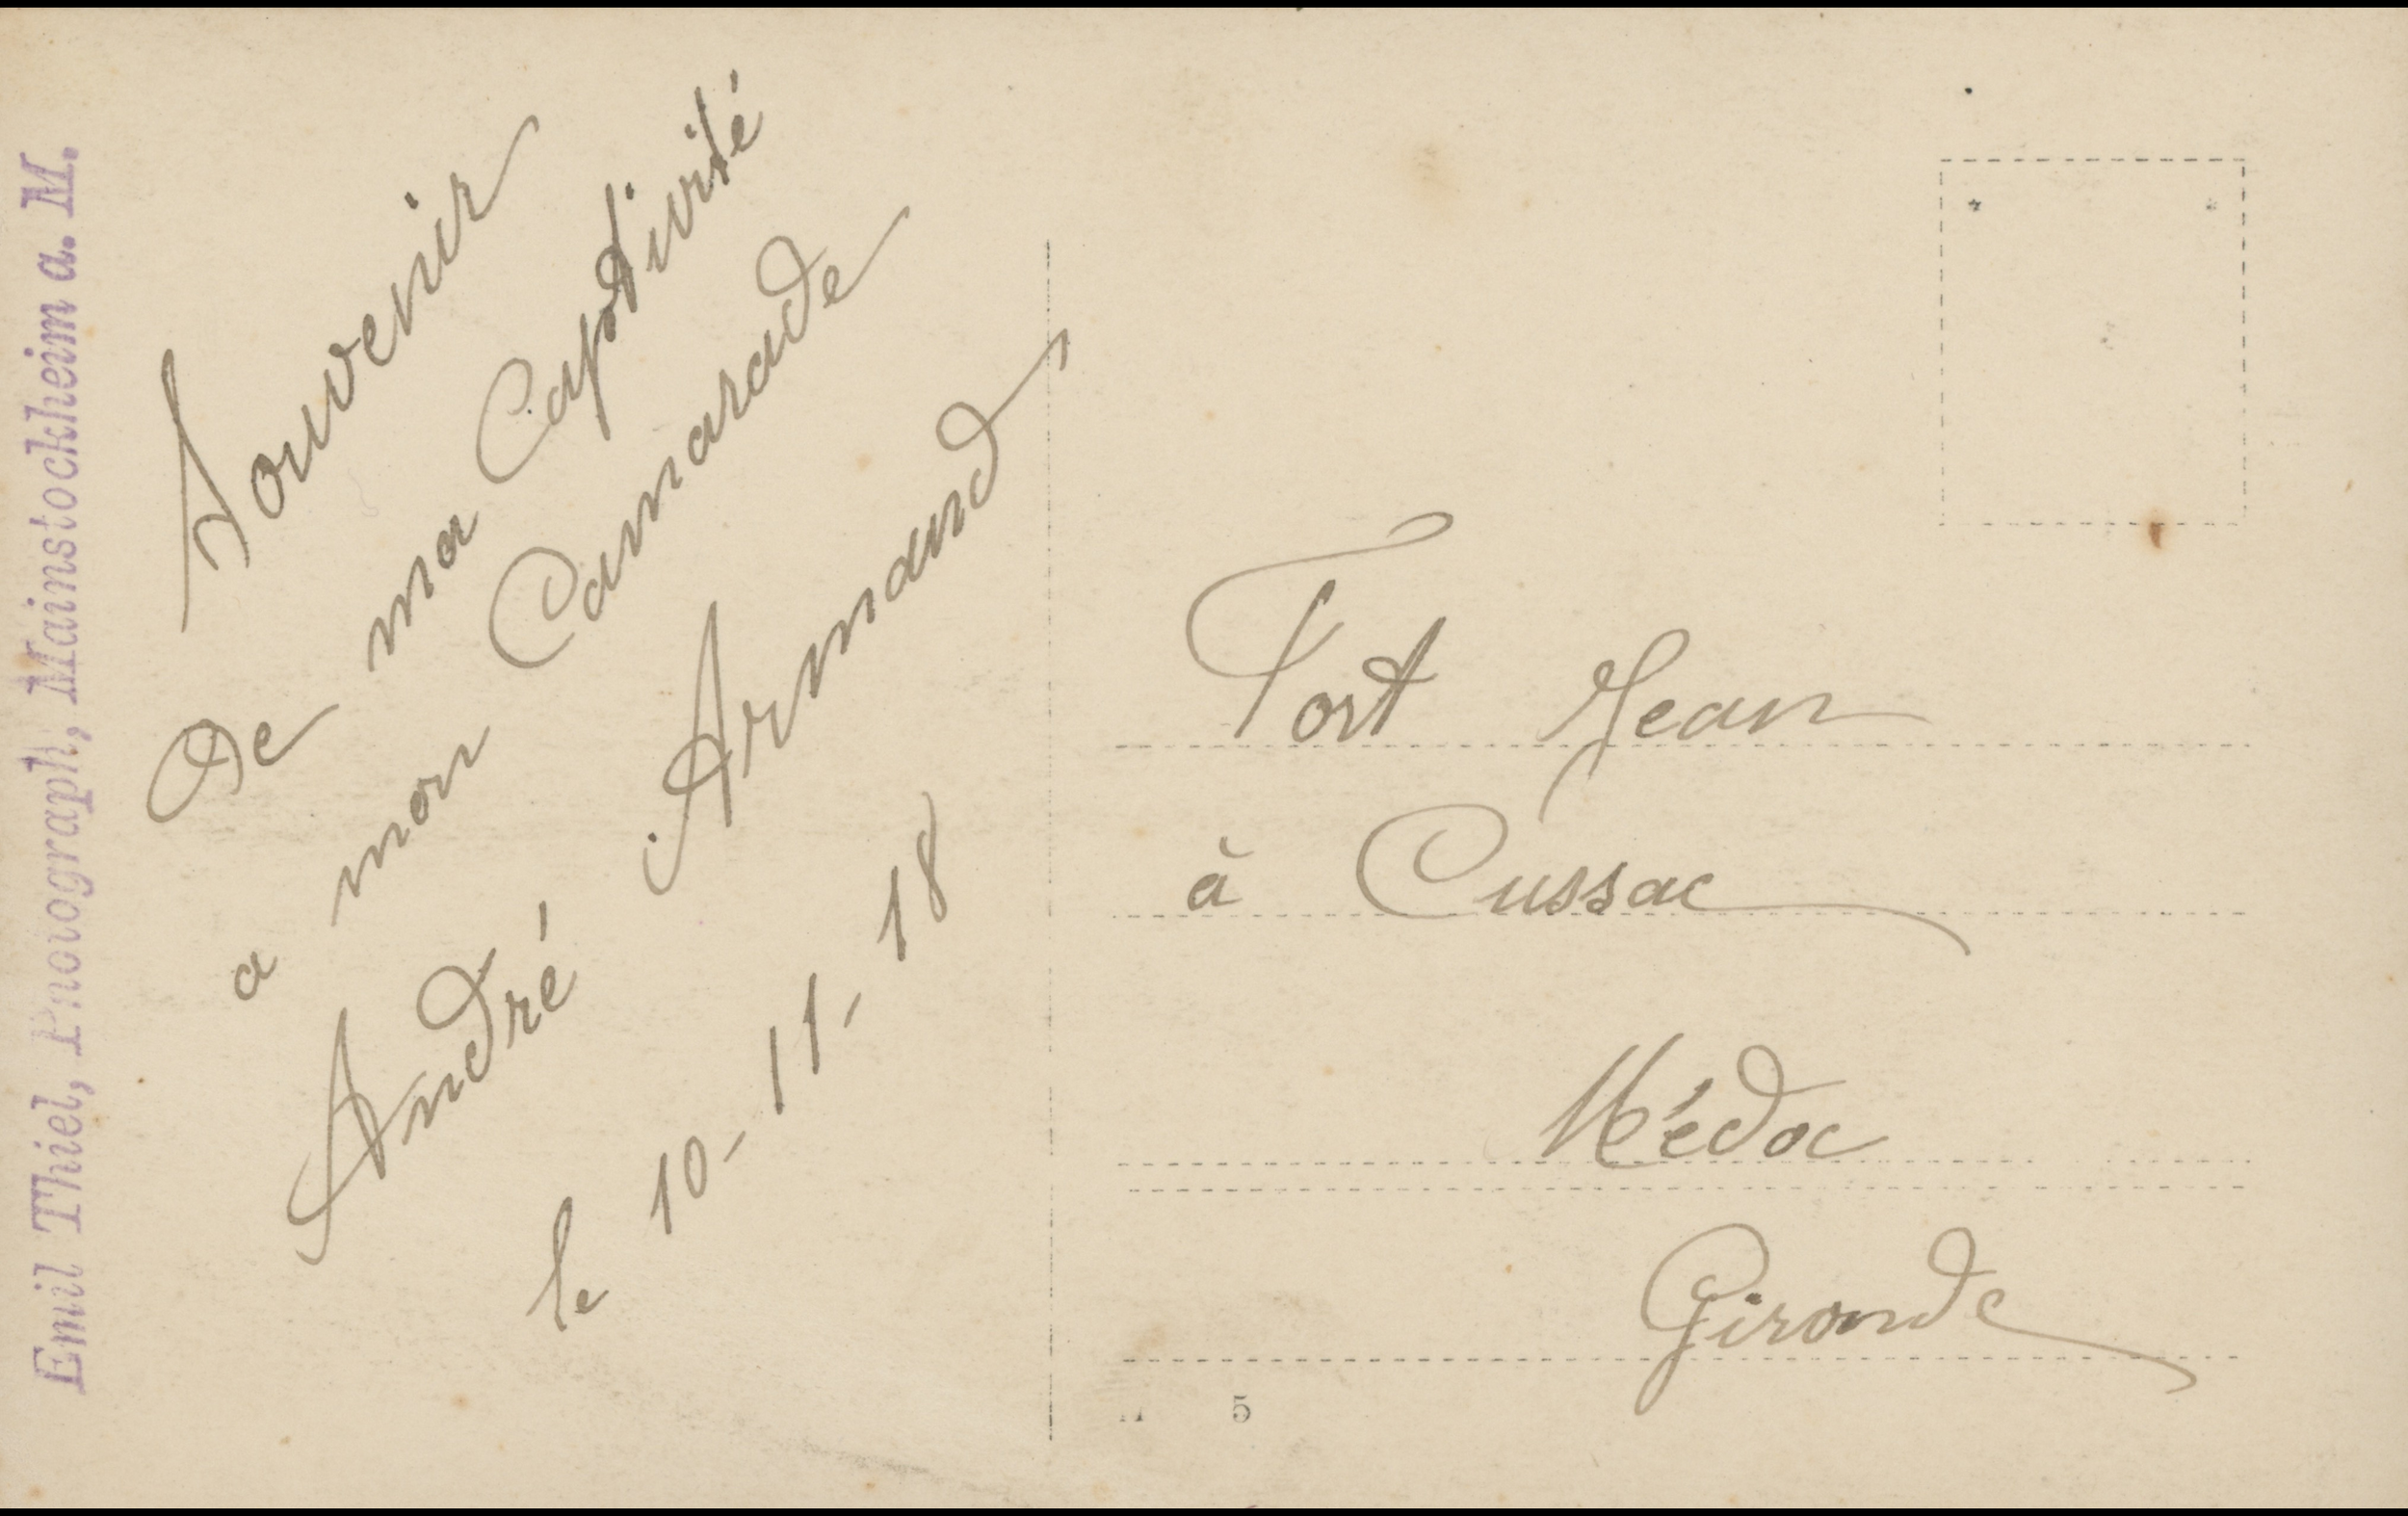 Emil Thiel, Photograph, Mainstockheim a. M.
Souvenir
De ma Captivité
a mon Camarade
André Armand
le 10-11-18
Fort Jean
à Cussac
Médoc
Gironde
5